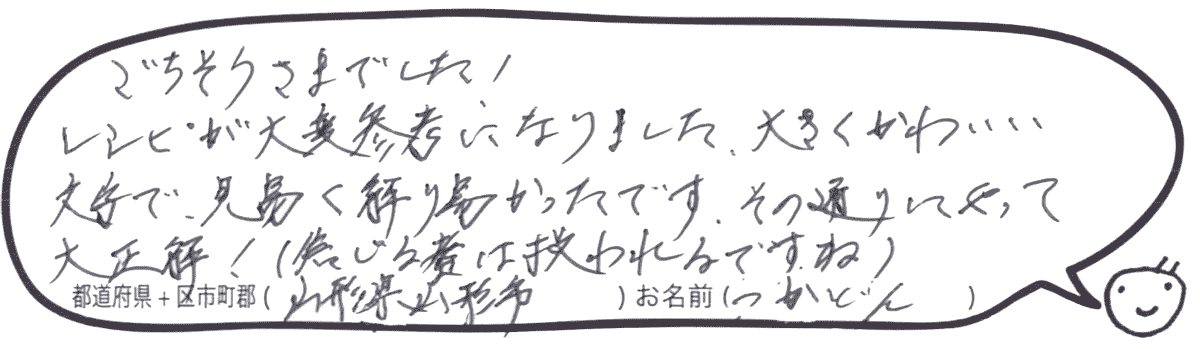 ごちそうさまでした!
レシピが大変参考になりました、大きくかわいい
文字で、見易く解り易かったです、その通りにやって
大正解!(信じる者は救われるですね)
都道府県+区市町郡(山形県山形市)お名前(つかどん)